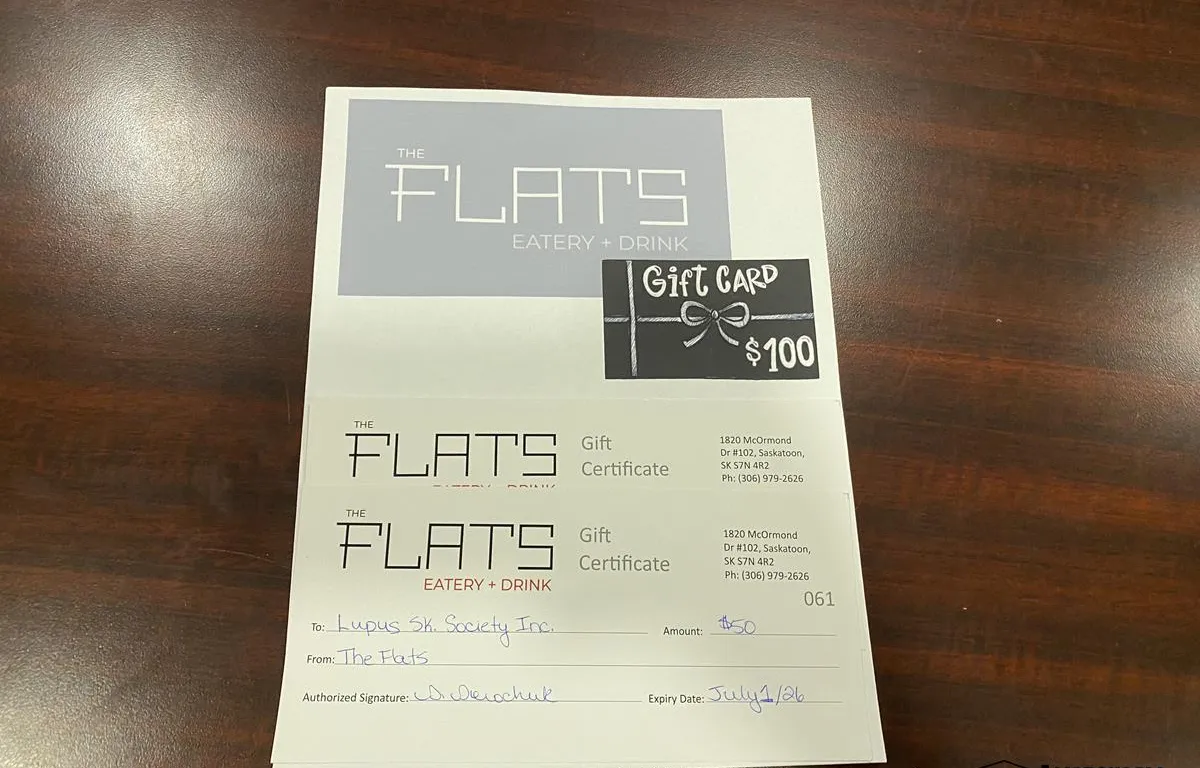 THE
FLATS
EATERY + DRINK
Gift CARD
$100
THE
FLATS
EATERY + DRINK
Gift
Certificate
1820 McOrmond
Dr #102, Saskatoon,
SK S7N 4R2
Ph: (306) 979-2626
THE
FLATS
EATERY + DRINK
Gift
Certificate
1820 McOrmond
Dr #102, Saskatoon,
SK S7N 4R2
Ph: (306) 979-2626
061
To: Lupus Sk. Society Inc. Amount: $50
From: The Flats
Authorized Signature: Expiry Date: July 1/26